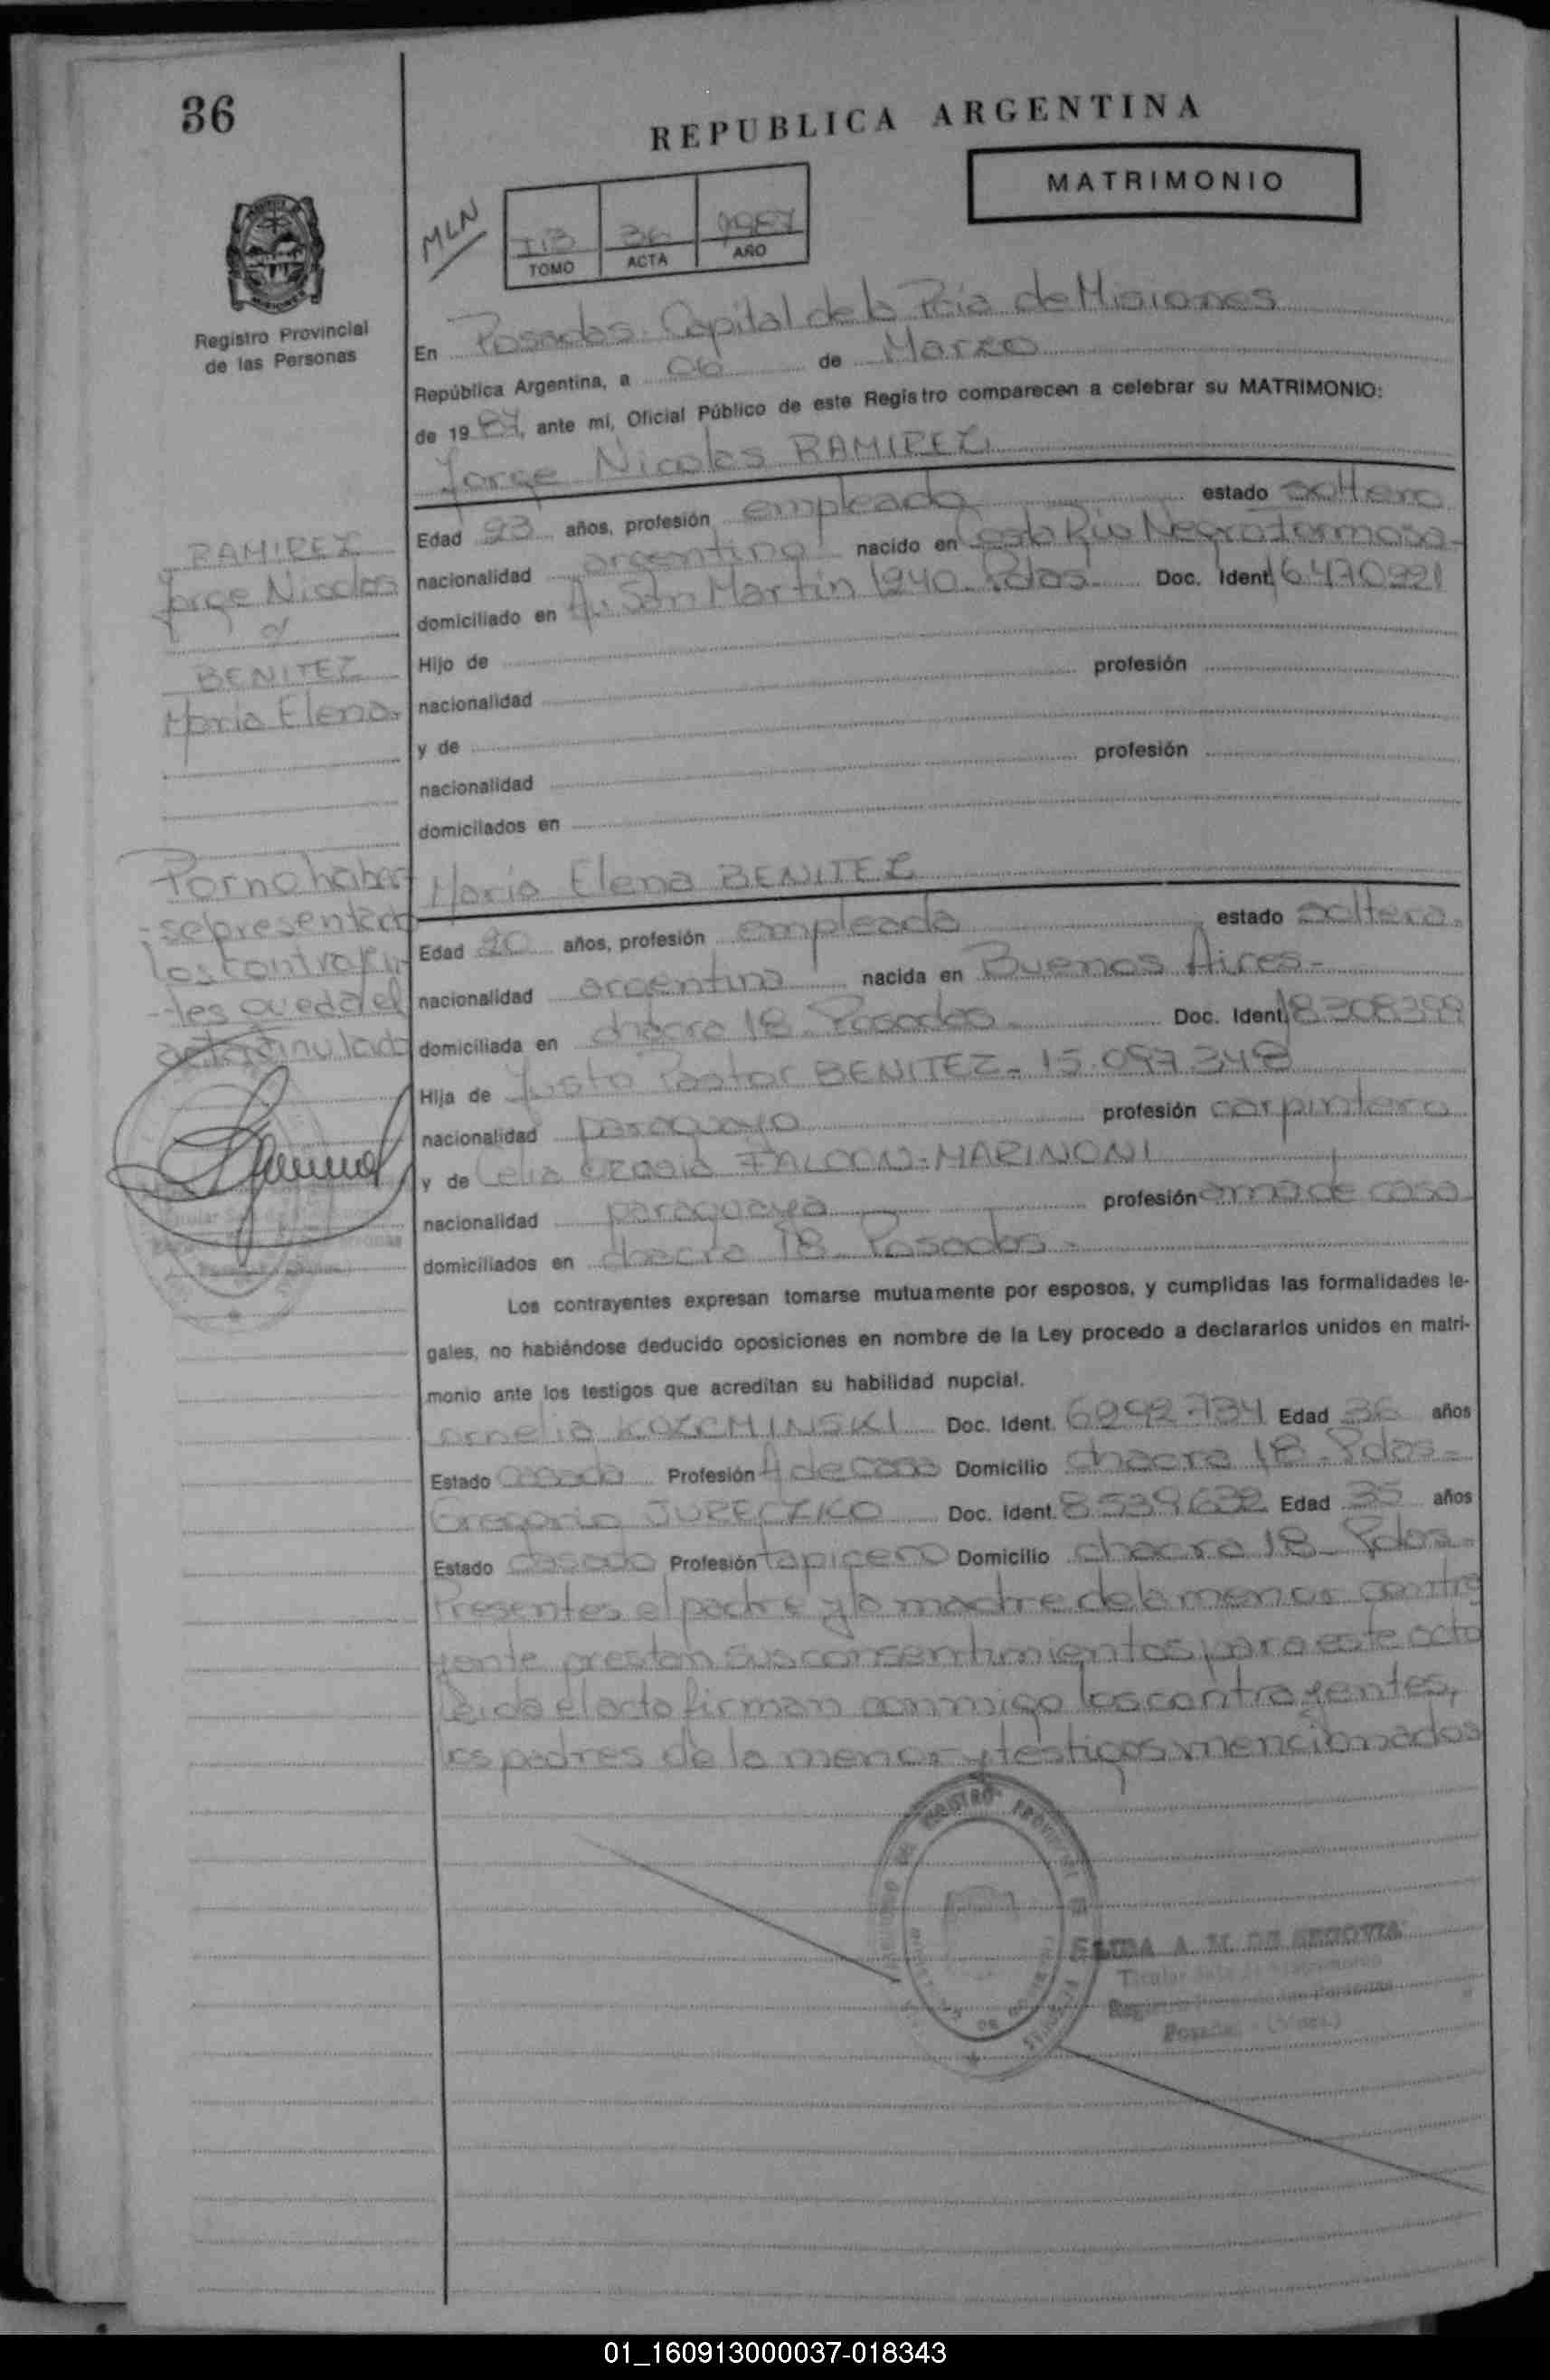 36
REPUBLICA ARGENTINA
MATRIMONIO
MLN
36 1987
TOMO ACTA AÑO
Registro Provincial
de las Personas
En Posadas Capital de la Pcia de Misiones
República Argentina, a 06 de Marzo
de 1987, ante mí, Oficial Público de este Registro comparecen a celebrar su MATRIMONIO:
Jorge Nicolas RAMIREZ
Edad 23 años, profesión empleado estado soltero
nacionalidad argentino nacido en Costa Rio Negro Formosa
domiciliado en Av. San Martin 1940 Pdas. Doc. Ident. 16.470.991
Hijo de
nacionalidad profesión
y de
nacionalidad profesión
domiciliados en
RAMIREZ
Jorge Nicolas
BENITEZ
Maria Elena
Maria Elena BENITEZ
Edad 20 años, profesión empleada estado soltera
nacionalidad argentina nacida en Buenos Aires
domiciliada en chacra 18 Posadas Doc. Ident. 18308399
Hija de Justo Pastor BENITEZ - 15.097.348
nacionalidad paraguayo profesión carpintero
y de Celia FALCON-MARINONI
nacionalidad paraguaya profesión ama de casa
domiciliados en chacra 18 Posadas
Por no haber
-se presentado
los contrayen
-tes queda el
acta anulado
Los contrayentes expresan tomarse mutuamente por esposos, y cumplidas las formalidades le-
gales, no habiéndose deducido oposiciones en nombre de la Ley procedo a declararlos unidos en matri-
monio ante los testigos que acreditan su habilidad nupcial.
KOZCMINSKI Doc. Ident. 6292.734 Edad 36 años
Estado Casada Profesión A de casa Domicilio chacra 18 - Pdas -
Gregorio JURECZKO Doc. Ident. 8.539.632 Edad 35 años
Estado casado Profesión tapicero Domicilio chacra 18 - Pdas -
Presentes el padre y la madre de la menor contra
yente prestan sus consentimientos para este acto
Leida el acta firman conmigo los contrayentes,
los padres de la menor y testigos mencionados
REGISTRO PROVINCIAL
A. M. DE SEGOVIA
Titular
Posadas - (Mnes.)
01_160913000037-018343